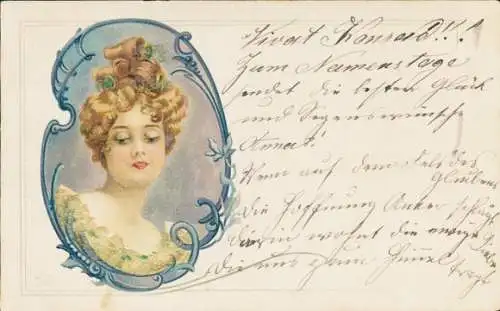 Vivat Konrad!!!
Zum Namenstage
sendet die besten Glück
und Segenswünsche
Annat!
Wenn auf dem Fels des
Glaubens
die Hoffnung Anker schlägt
darin wohnt die
die uns zum Himmel trägt